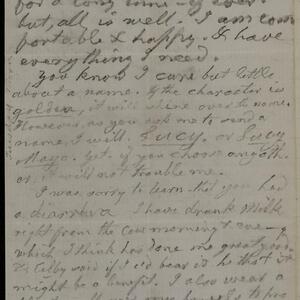 for a long time
but, all is well. I am com
fortable & happy. I have
everything I need.
You know I care but little
about a name. If the character is
golden, it will shine over the name.
However, as you ask me to send a
name, I will. Lucy. or Lucy
Mayo. Yet, if you choose anoth
er, it will not trouble me.
I was sorry to learn that you had
a diarrhea I have drank Milk
right from the Cow morning & eve
which I think has done me great good
said if I'd bear it he that it
might be a benefit. I also wear a